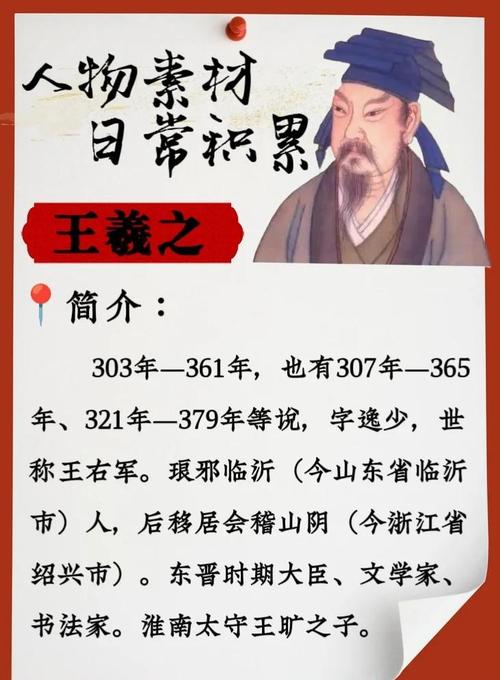 人物素材
日常积累
王羲之
简介：
303年—361年，也有307年—365
年、321年—379年等说，字逸少，世
称王右军。琅邪临沂（今山东省临沂
市）人，后移居会稽山阴（今浙江省
绍兴市）。东晋时期大臣、文学家、
书法家。淮南太守王旷之子。